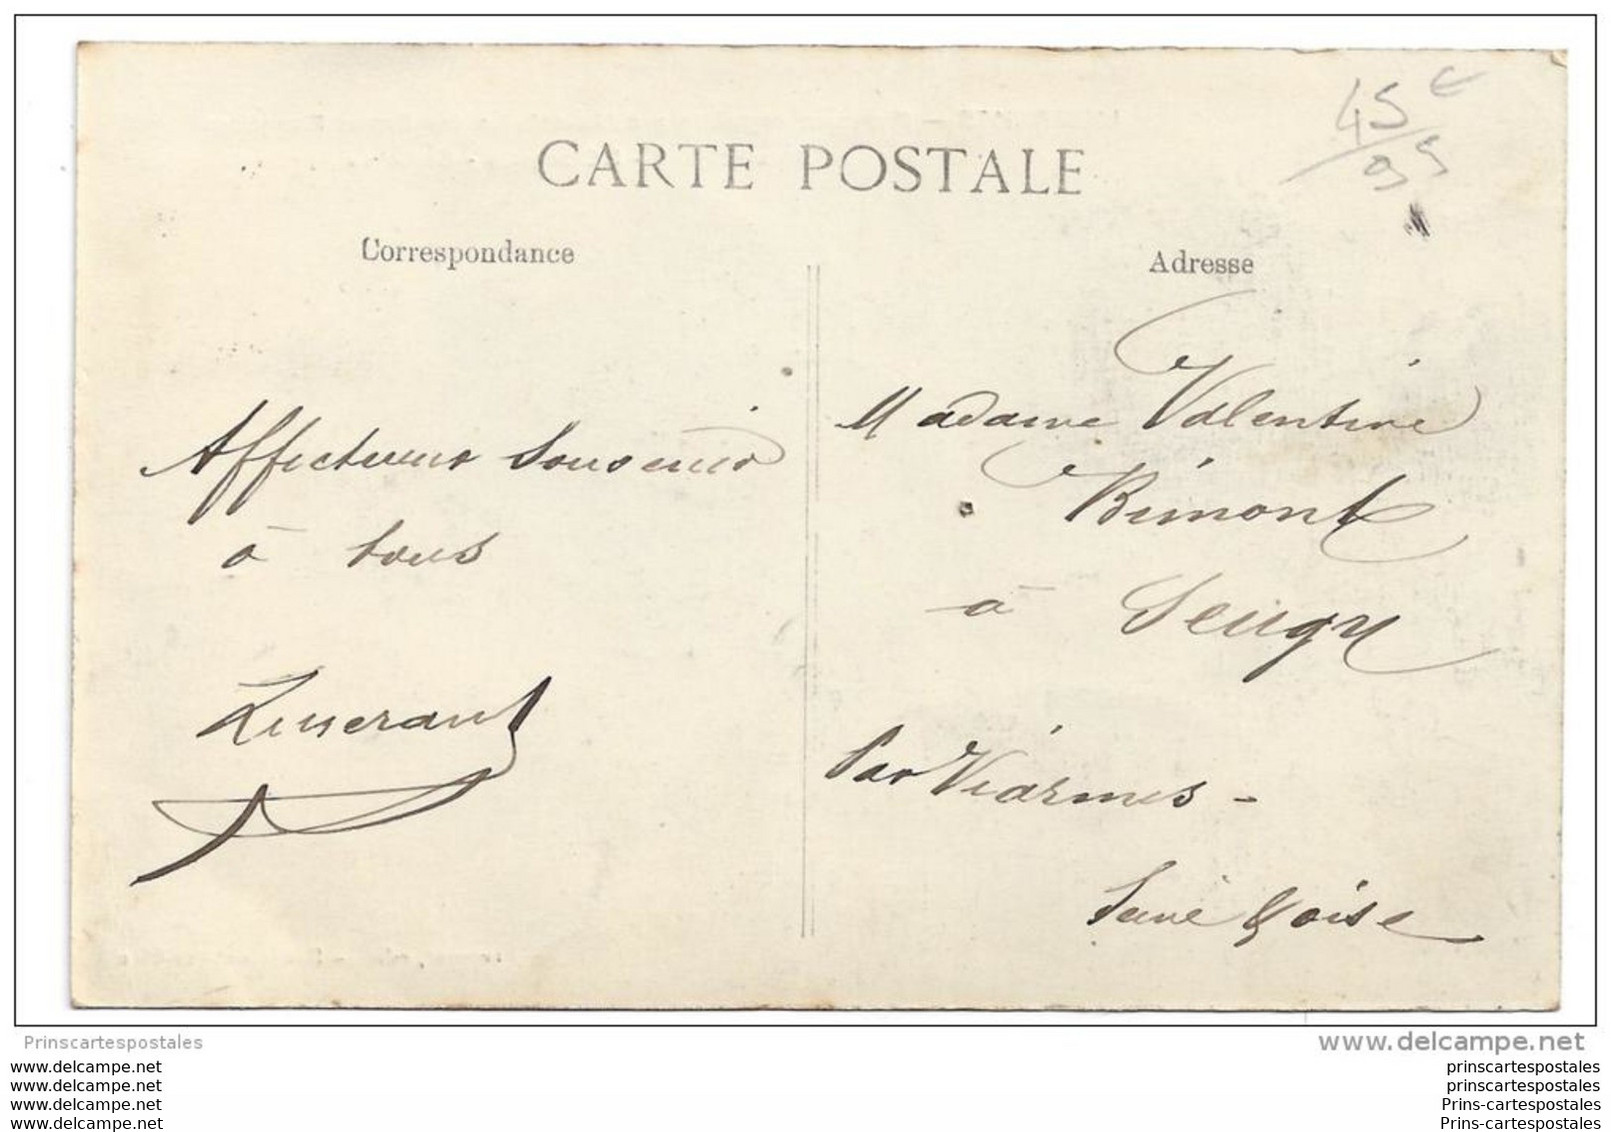 45 €
95
CARTE POSTALE
Correspondance
Adresse
Affectueux Souvenir
à tous
Madame Valentine
Bimont
à Seugy
Par Viarmes -
Seine & Oise
Prinscartespostales
www.delcampe.net
www.delcampe.net
www.delcampe.net
www.delcampe.net
www.delcampe.net
prinscartespostales
prinscartespostales
Prins-cartespostales
Prins-cartespostales